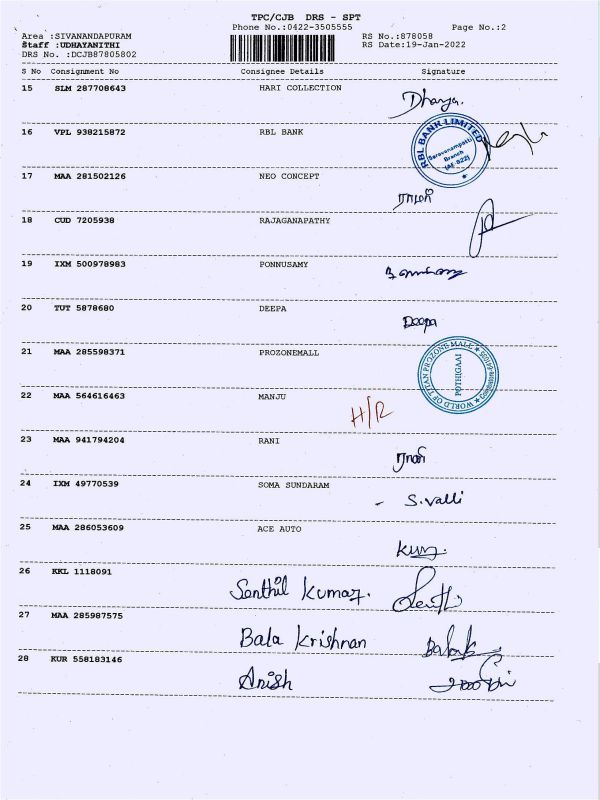 TPC/CJB DRS - SPT
Phone No.:0422-3505555 Page No.:2
Area :SIVANANDAPURAM RS No.:878058
Staff :UDHAYANITHI RS Date:19-Jan-2022
DRS No. :DCJB87805802
S No Consignment No Consignee Details Signature
15 SLM 287708643 HARI COLLECTION
Dhanya.
16 VPL 938215872 RBL BANK
RBL BANK LIMITED
Saravanampatti
Branch
17 MAA 281502126 NEO CONCEPT
18 CUD 7205938 RAJAGANAPATHY
19 IXM 500978983 PONNUSAMY
20 TUT 5878680 DEEPA
Deepa
21 MAA 285598371 PROZONEMALL
WORLD OF TITAN PROZONE MALL
POTHIGAAI
22 MAA 564616463 MANJU
H/R
23 MAA 941794204 RANI
ராணி
24 IXM 49770539 SOMA SUNDARAM
- S.Valli
25 MAA 286053609 ACE AUTO
26 KKL 1118091 Senthil Kumar.
27 MAA 285987575 Bala Krishnan
28 KUR 558183146 Anish